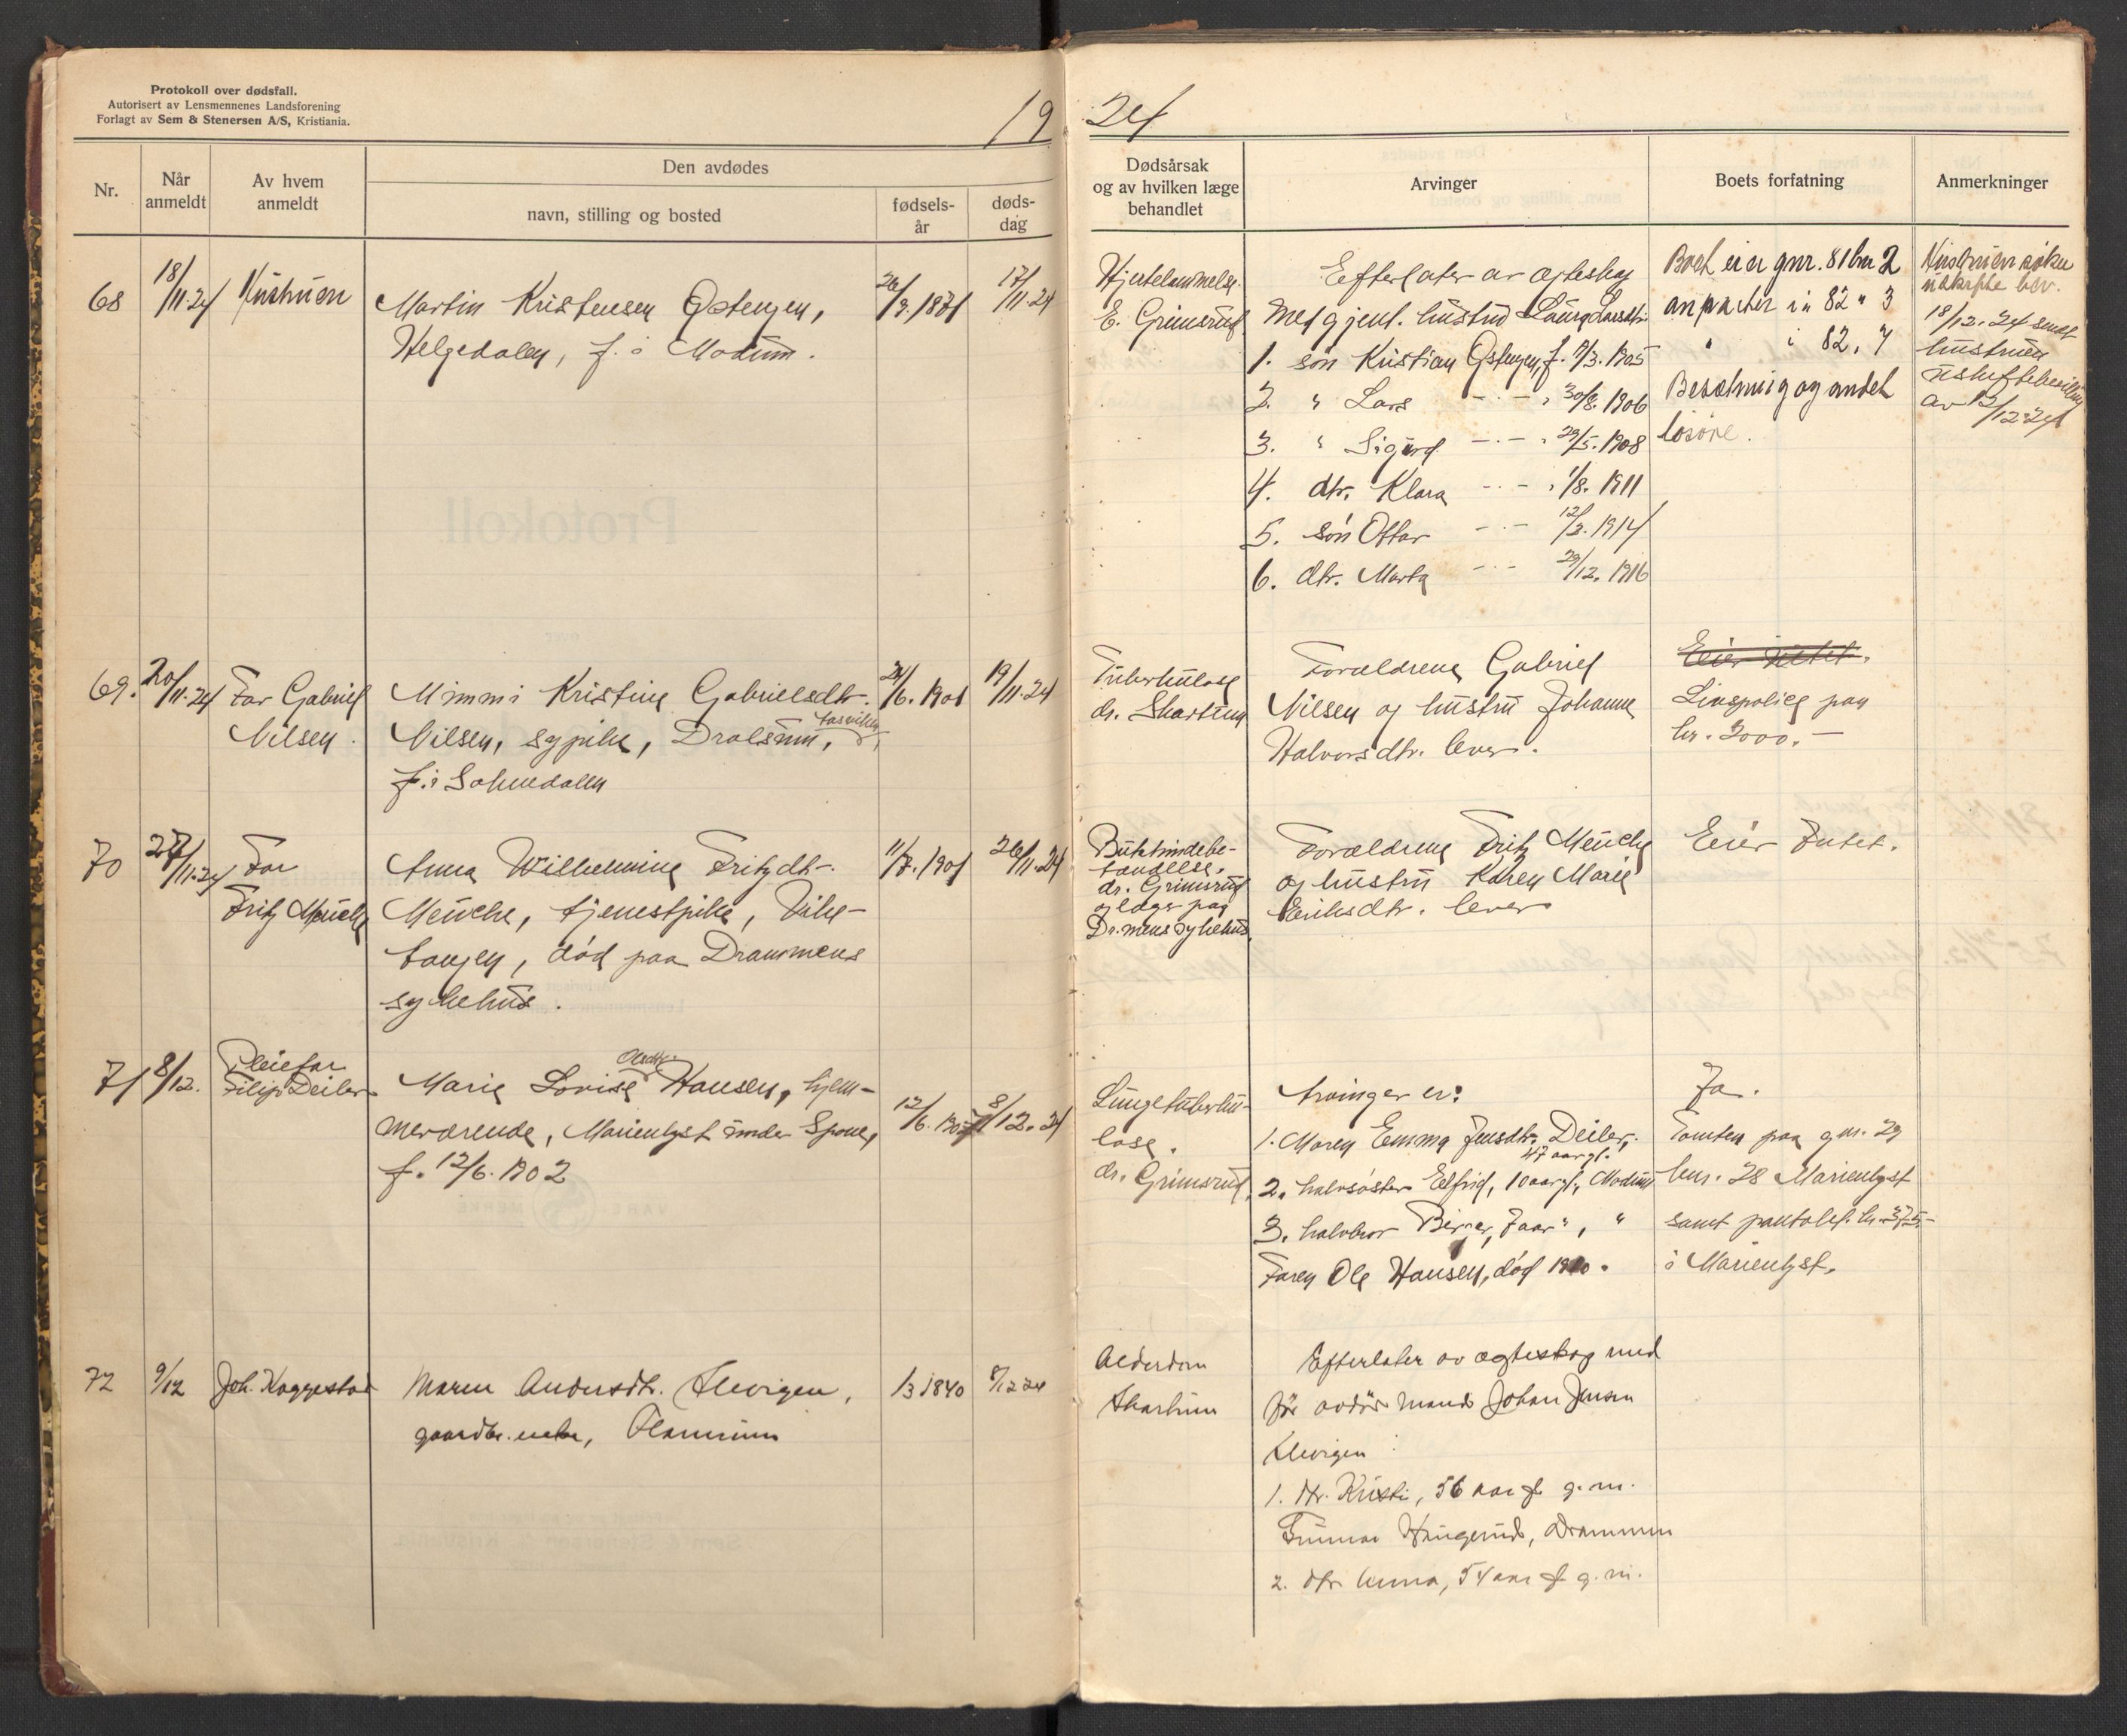 Protokoll over dødsfall.
Autorisert av Lensmennenes Landsforening
Forlagt av Sem & Stenersen A/S, Kristiania.
19 24
Nr.
Når anmeldt
Av hvem anmeldt
Den avdødes
navn, stilling og bosted
fødsels-
år
døds-
dag
Dødsårsak
og av hvilken læge
behandlet
Arvinger
Boets forfatning
Anmerkninger
68
18/11.24
Hustruen
Martin Kristensen
Helgedalen, f. i Modum.
17/11.24
Hjertelammelse
E. Grimsrud
Efterlater av ægteskap
med gjenl. hustru Laura Larsdtr.
1. søn Kristian
2. " Lars -.- " 30/8. 1906
3. " Sigurd -.- " 29/5. 1908
4. dtr. Klara -.- " 1/8. 1911
5. søn Ottar -.- 12/3. 1914
6. dtr. Marta -.- 29/12. 1916
Boet eier gnr. 81 bnr 2
anparter i " 82 " 3
" i 82, 7
Besætning og andet
løsøre.
Hustruen søker
uskifte bev.
18/12.24 sendt
hustruen
uskiftebevilling
av 12/12.24
69.
20/11.24
Far Gabriel
Nilsen.
Mimmi Kristine Gabrielsdtr.
Nilsen, sypike, Drolsum,
f. i
24/6. 1901
19/11.24
Tuberkulose
dr. Skartum
Forældrene Gabriel
Nilsen og hustru Johanne
Halvorsdtr. lever.
Eier intet.
Livspolice paa
kr. 2000.-
70
27/11.24
Far
Fritz Meuche
Anna Wilhelmine Fritzdtr.
Meuche, tjenestpike, Vike-
tangen, død paa Drammens
sykehus.
11/7. 1901
26/11.24
Bukhindebe-
tændelse,
dr. Grimsrud
og læge paa
Dr.mens sykehus.
Forældrene Fritz Meuche
og hustru Karen Marie
Eriksdtr. lever
Eier Intet.
71
8/12.
Pleiefar
Filip Deiler
Olsdtr.
Marie Lovise Hansen, hjem-
meværende, Marienlyst under Spone,
f. 12/6. 1902
12/6.
8/12.24
Lungetuberku-
lose.
dr. Grimsrud.
Arvinger er:
1. Maren Emma Jensdtr. Deiler,
47 aar gl.
2. halvsøster Elfrid, 10 aar gl., Modum
3. halvbror Birger, 7 aar ", "
Faren Ole Hansen, død 1910.
Ja.
Tomten paa gnr. 29
bnr. 28 Marienlyst
samt pantobl. kr. 375.-
i Marienlyst.
72
9/12
Joh. Kaggestad
Maren Andersdtr.
gaardbr. enke,
1/3 1840
8/12 24
Alderdom
Skartum
Efterlater av ægteskap med
før avdøde mand Johan Jensen
1. dtr. Kristi, 56 aar gl. g.m.
Gunnar Haugerud, Drammen
2. dtr. Anna, 54 aar gl. g.m.